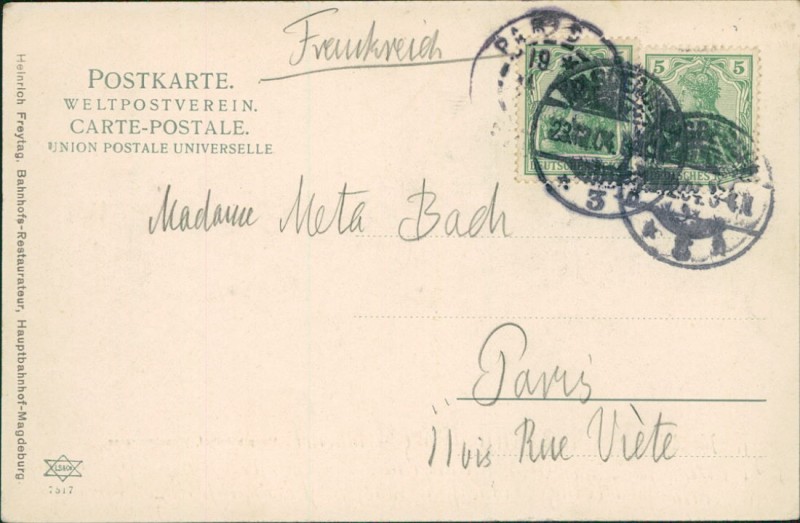 Frankreich
POSTKARTE.
WELTPOSTVEREIN.
CARTE-POSTALE.
UNION POSTALE UNIVERSELLE
PARIS
19
5
DEUTSCHES
23.12.04.
* 3
Madame Meta Bach
Paris
11bis Rue Viète
Heinrich Freytag, Bahnhofs-Restaurateur, Hauptbahnhof-Magdeburg.
7317